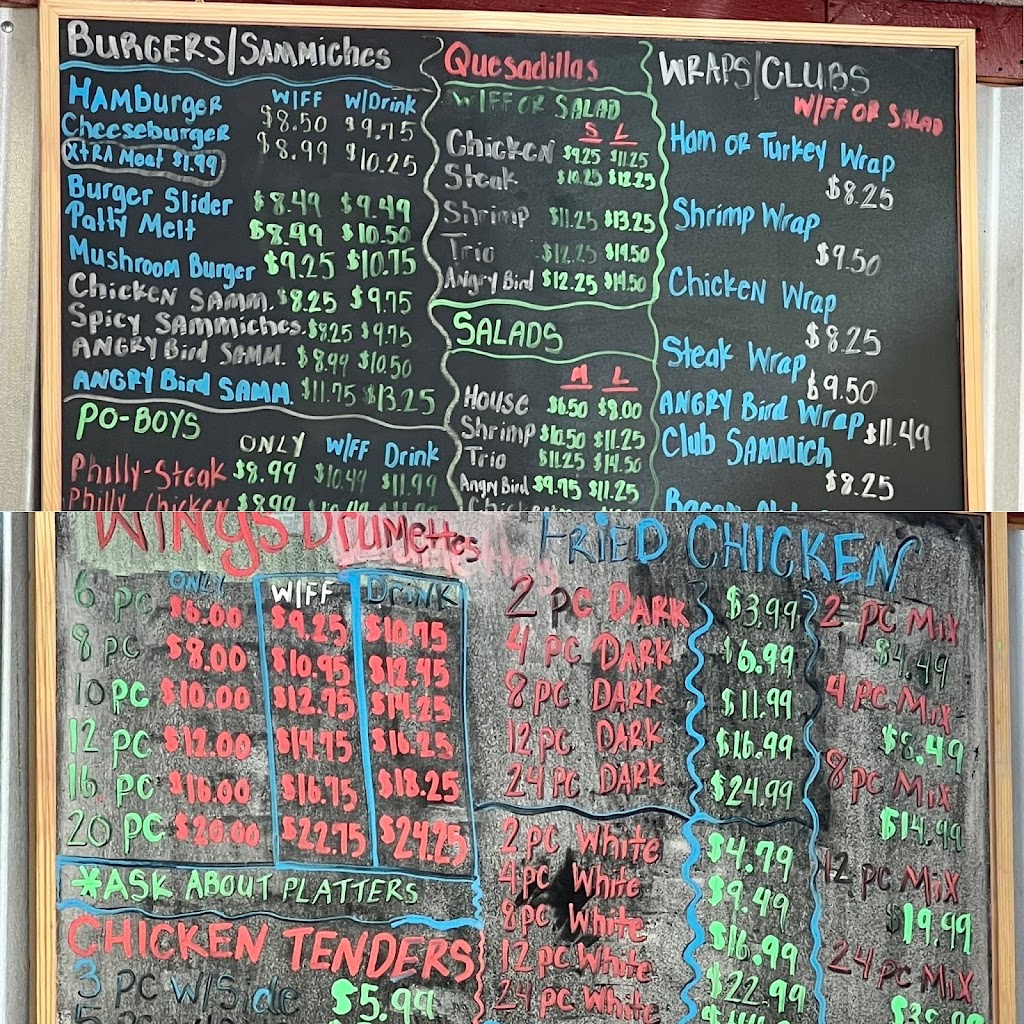 BURGERS/SAMMICHES
W/FF W/Drink
HAMBURGER $8.50 $9.75
Cheeseburger $8.99 $10.25
XTRA Meat $1.99
Burger Slider $8.49 $9.49
Patty Melt $8.99 $10.50
Mushroom Burger $9.25 $10.75
Chicken SAMM. $8.25 $9.75
Spicy SAMMiches. $8.25 $9.75
ANGRY Bird SAMM. $8.99 $10.50
ANGRY Bird SAMM. $11.75 $13.25
PO-BOYS
ONLY W/FF Drink
Philly-Steak $8.99 $10.49 $11.99
Philly Chicken $8.99
Quesadillas
W/FF OR SALAD
S L
Chicken $9.25 $11.25
Steak $10.25 $12.25
Shrimp $11.25 $13.25
Trio $12.25 $14.50
Angry Bird $12.25 $14.50
SALADS
M L
House $6.50 $8.00
Shrimp $10.50 $11.25
Trio $11.25 $14.50
Angry Bird $9.75 $11.25
WRAPS/CLUBS
W/FF OR SALAD
Ham or Turkey Wrap
$8.25
Shrimp Wrap
$9.50
Chicken Wrap
$8.25
Steak Wrap
$9.50
ANGRY Bird Wrap $11.49
Club SAMMich
$8.25
WINGS Drumettes
ONLY W/FF DRINK
6 PC $6.00 $9.25 $10.75
8 PC $8.00 $10.95 $12.45
10 PC $10.00 $12.75 $14.25
12 PC $12.00 $14.75 $16.25
16 PC $16.00 $16.75 $18.25
20 PC $20.00 $22.75 $24.25
*ASK ABOUT PLATTERS
CHICKEN TENDERS
3 PC W/Side $5.99
FRIED CHICKEN
2 PC DARK $3.99
4 PC DARK $6.99
8 PC DARK $11.99
12 PC DARK $16.99
24 PC DARK $24.99
2 PC White $4.79
4 PC White $9.49
8 PC White $16.99
12 PC White $22.99
24 PC White
2 PC Mix
$4.49
4 PC Mix
$8.49
8 PC Mix
$14.99
12 PC Mix
$19.99
24 PC Mix